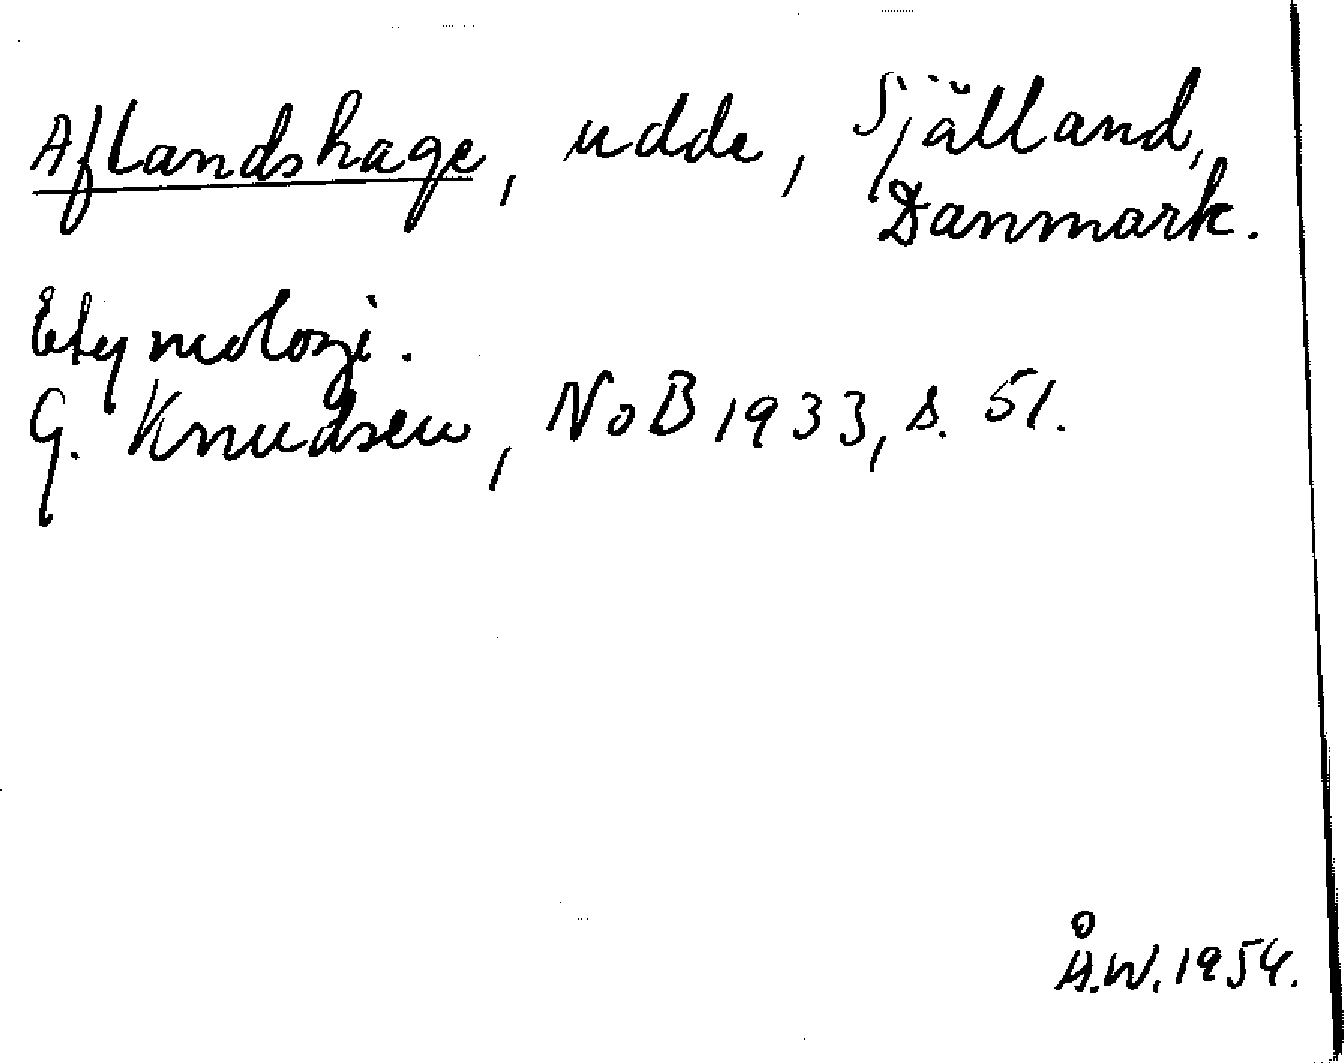 Aflandshage, udde, Själland,
Danmark.
Etymologi.
G. Knudsen, NoB 1933, s. 51.
Å.W. 1954.